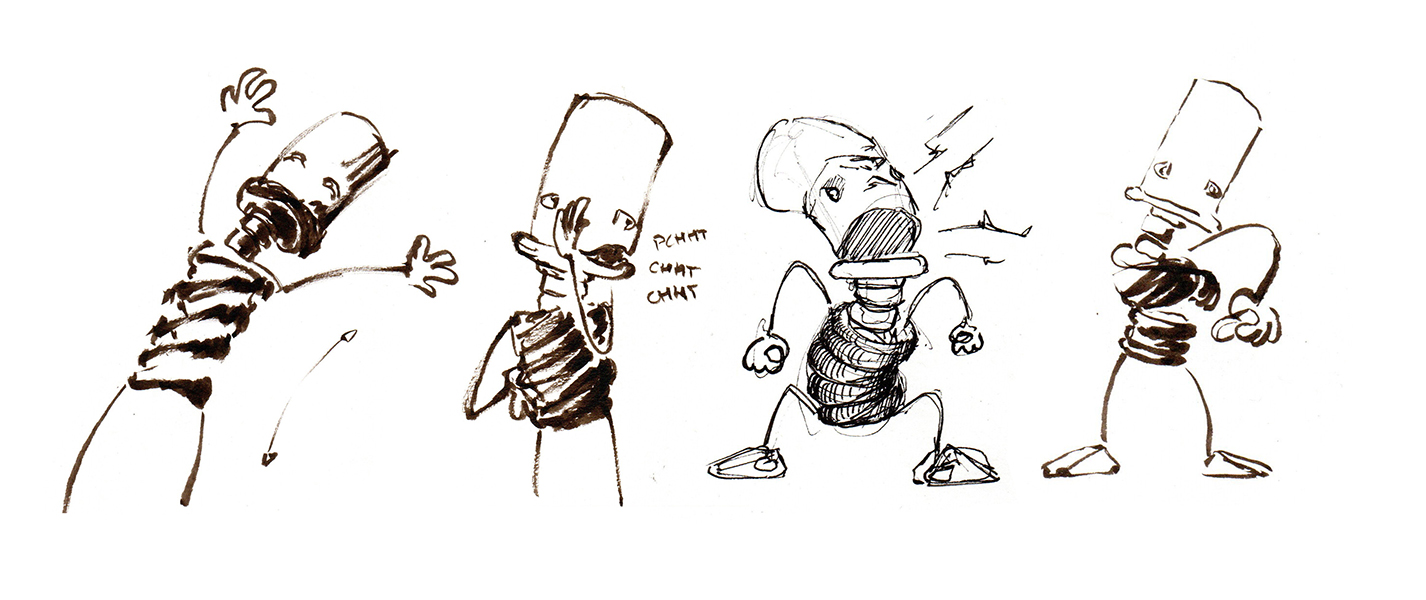 PCHHT
CHHT
CHHT